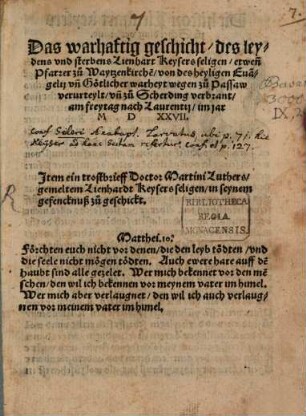 Das warhaftig geschicht/des ley-
dens vnd sterbens Lienhart Keysers seligen/etweñ
Pfarrer zů Waytzenkirchē/von des heyligen Euā-
gelij vñ Götlicher warheyt wegen zů Passaw
verurteylt/vñ zů Scherding verbrant/
am freytag nach Laurentij/im jar
M D XXVII.
p. 71.
Keyser p. 127.
Item ein trostbrieff Doctor Martini Luthers/
gemeltem Lienhardt Keysers seligen/in seynem
gefencknuß zů geschickt.
BIBLIOTHECA
REGIA
MONACENSIS.
Matthei.10.
Förchten euch nicht vor denen/die den leyb tödten/vnd
die seele nicht mögen tödten. Auch ewere hare auff dē
haubt sind alle gezelet. Wer mich bekennet vor den mē
schen/den wil ich bekennen vor meynem vater im himel.
Wer mich aber verlaugnet/den wil ich auch verlaug-
nen vor meinem vater im himel.